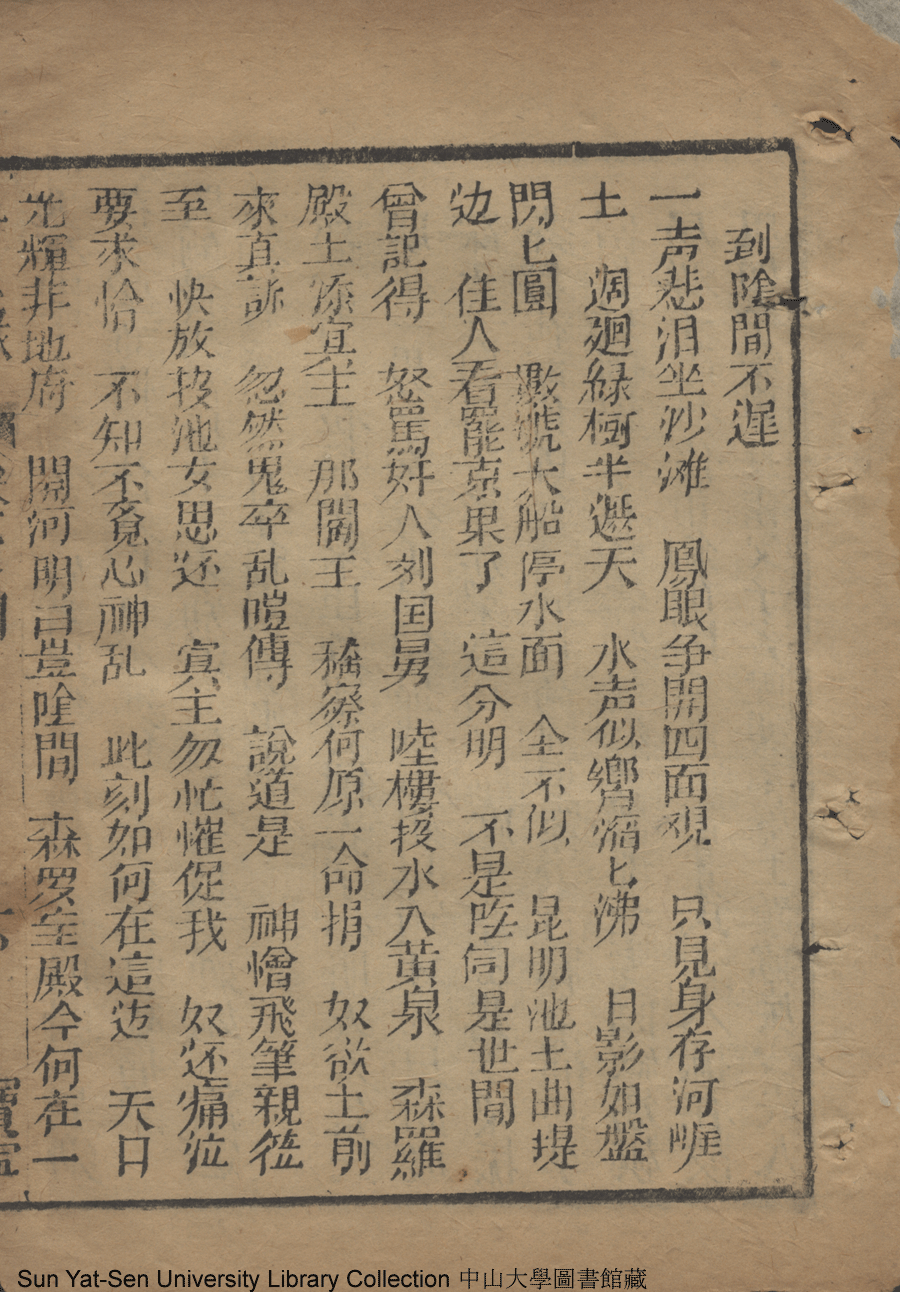 到陰間不遲
一声悲泪坐沙滩　鳳眼争開四面观　只見身存河崕
土　週廻緑樹半遮天　水声似響滔匕沸　日影如盤
閃匕圓　數號大船停水面　全不似　昆明池土曲堤
边　佳人看罷京果了　這分明　不是陰伺是世間
曾記得　怒罵奸人刘囯舅　陸樓投水入黄泉　森羅
殿土添宾主　那閻王　稽察何原一命捐　奴欲土前
來真訴　忽然鬼卒乱喧傳　說道是　神憎飛筆親莅
至　快放投池女思还　宾主勿忙催促我　奴还痛泣
要求恰　不知不覓心神乱　此刻如何在這边　天口
光輝非地府　開河明曰豈陰間　森罗宝殿今何在一